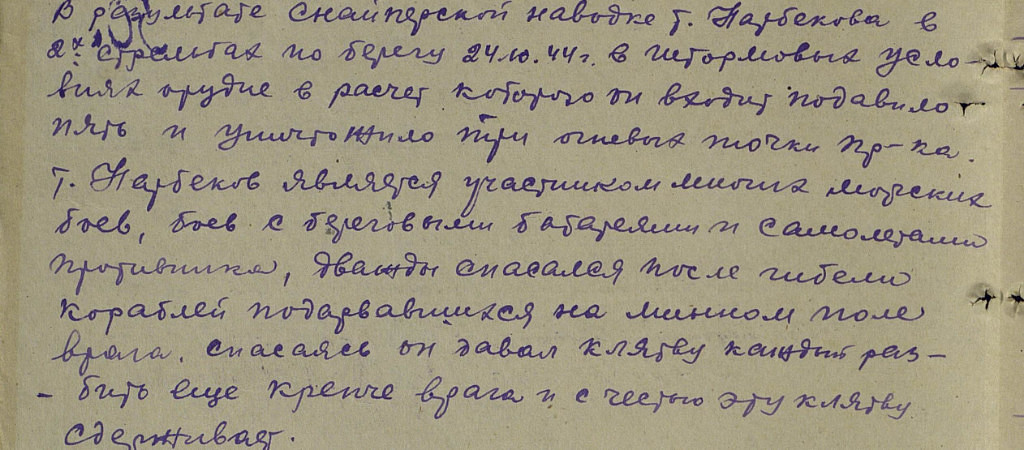 В результате снайперской наводке т. Нарбекова в
2х стрельбах по берегу 24.10.44г. в штормовых усло-
виях орудие в расчет которого он входит подавило
пять и уничтожило три огневых точки пр-ка.
Т. Нарбеков является участником многих морских
боев, боев с береговыми батареями и самолетами
противника, дважды спасался после гибели
кораблей подарвавшихся на минном поле
врага. Спасаясь он давал клятву каждый раз -
- бить еще крепче врага и с честью эту клятву
сдерживает.